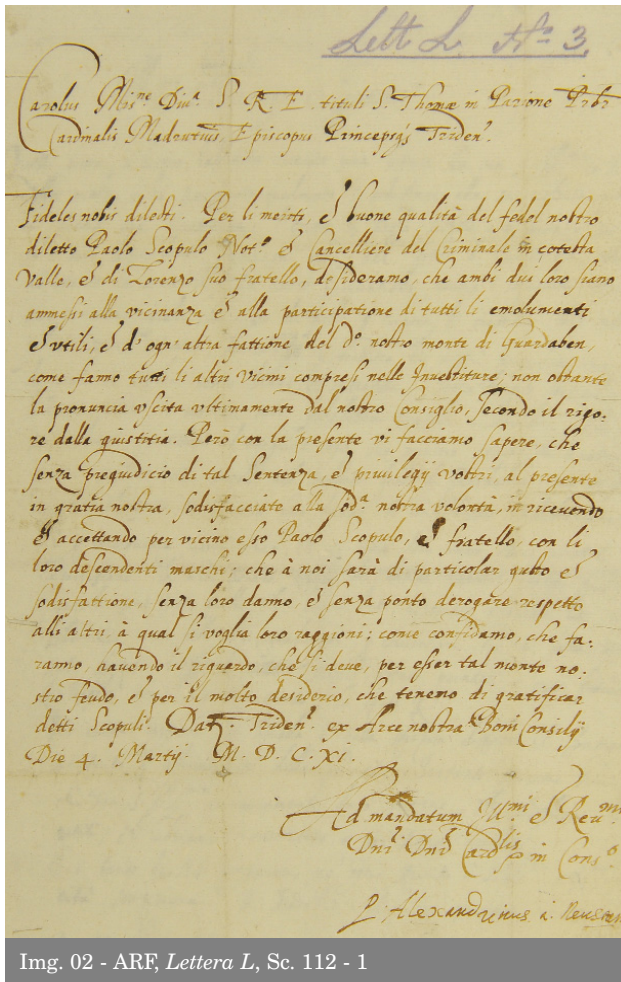 Lett L. Nº 3.
Carolus Misne Diva. S. R. E. tituli S. Thomæ in Parione Prbr
Cardinalis Madrutius, Episcopus Princepsq́s Triden.
Fideles nobis dilecti. Per li meriti, et buone qualità del fedel nostro
diletto Paolo Scopulo Not.º et Cancelliere del Criminale in cotesta
Valle, et di Lorenzo suo fratello, desideramo, che ambi dui loro siano
ammessi alla vicinanza et alla participatione di tutti li emolumenti
et utili, et d' ogn' altra fattione del d.º nostro monte di Guardaben,
come fanno tutti li altri Vicini compresi nelle Investiture; non ostante
la pronuncia uscita ultimamente dal nostro Consiglio, secondo il rigo-
re della giustitia. Però con la presente vi facciamo sapere, che
senza pregiudicio di tal Sentenza, et privilegij vostri, al presente
in gratia nostra, sodisfacciate alla sod.ª nostra volontà, in ricevendo
et accettando per vicino esso Paolo Scopulo, et fratello, con li
loro descendenti maschi; che à noi sarà di particolar gusto et
sodisfattione, senza loro danno, et senza pónto derogare rispetto
alli altri, à qual si voglia loro raggioni; come confidamo, che fa-
ranno, havendo il riguardo, che si deve, per esser tal monte no-
stro feudo, et per il molto desiderio, che tenemo di gratificar
detti Scopuli. Dat. Triden. ex Arce nostra Boni Consilij
Die 4. Martij. M. D. C. XI.
Ad mandatum Ill.mi et Rev.mi
Dni Dni Cardlis in Cons.º
Alexandrinus à
Img. 02 - ARF, Lettera L, Sc. 112 - 1